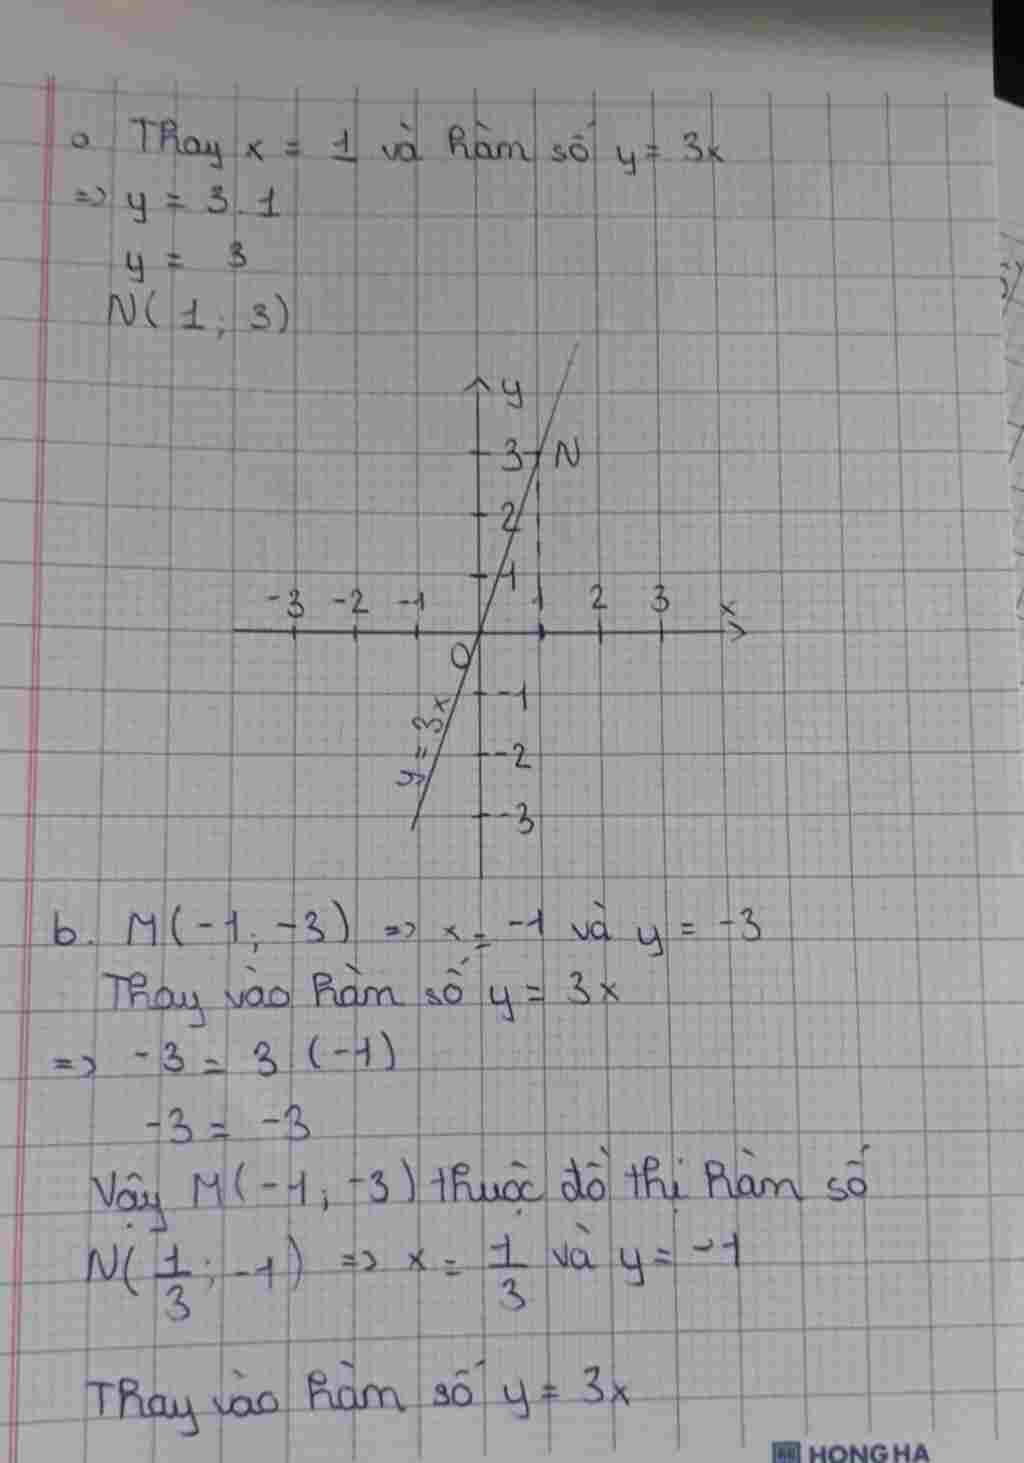 a Thay x = 1 và hàm số y = 3x
=> y = 3.1
y = 3
N(1; 3)
y
3 N
2
1
-3 -2 -1 1 2 3 x
O
-1
y = 3x
-2
-3
b. M(-1; -3) => x = -1 và y = -3
Thay vào hàm số y = 3x
=> -3 = 3 (-1)
-3 = -3
Vậy M(-1; -3) thuộc đồ thị hàm số
N(1/3; -1) => x = 1/3 và y = -1
Thay vào hàm số y = 3x
HONG HA